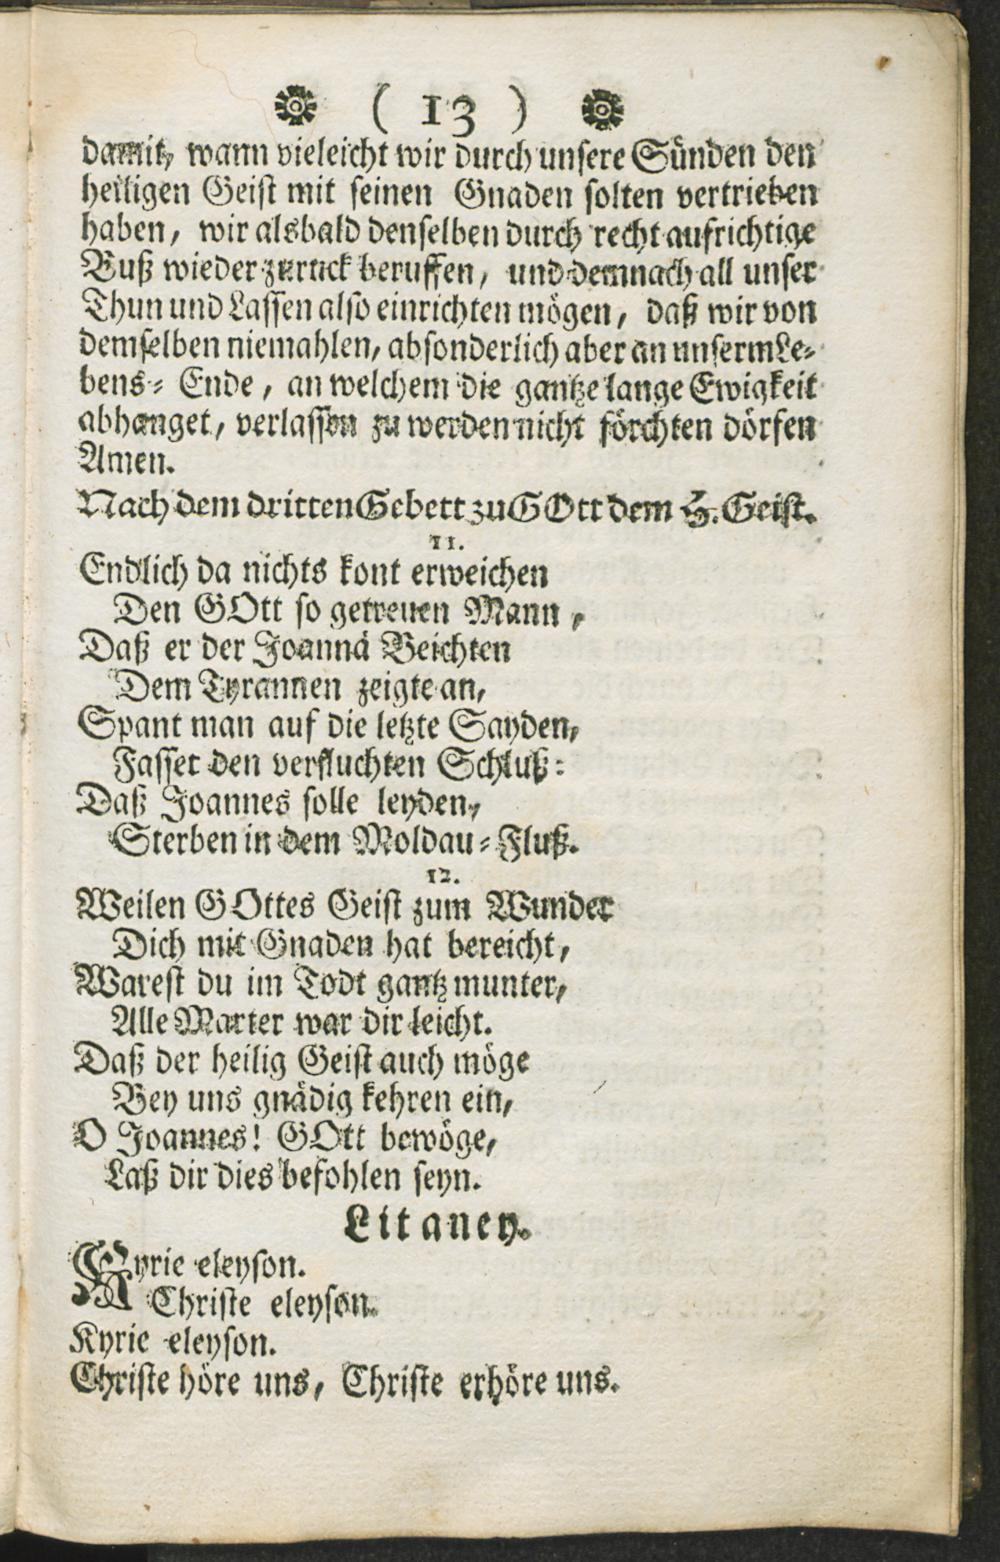 ( 13 )
damit, wann vieleicht wir durch unsere Sünden den
heiligen Geist mit seinen Gnaden solten vertrieben
haben, wir alsbald denselben durch recht aufrichtige
Buß wieder zuruck beruffen, und demnach all unser
Thun und Lassen also einrichten mögen, daß wir von
demselben niemahlen, absonderlich aber an unserm Le-
bens-Ende, an welchem die gantze lange Ewigkeit
abhanget, verlassen zu werden nicht förchten dörfen
Amen.
Nach dem dritten Gebett zu GOtt dem H. Geist.
11.
Endlich da nichts kont erweichen
Den GOtt so getreuen Mann,
Daß er der Joannä Beichten
Dem Tyrannen zeigte an,
Spant man auf die letzte Sayden,
Fasset den verfluchten Schluß:
Daß Joannes solle leyden,
Sterben in dem Moldau-Fluß.
12.
Weilen GOttes Geist zum Wunder
Dich mit Gnaden hat bereicht,
Warest du im Todt gantz munter,
Alle Marter war dir leicht.
Daß der heilig Geist auch möge
Bey uns gnädig kehren ein,
O Joannes! GOtt bewöge,
Laß dir dies befohlen seyn.
Litaney.
Kyrie eleyson.
Christe eleyson.
Kyrie eleyson.
Christe höre uns, Christe erhöre uns.